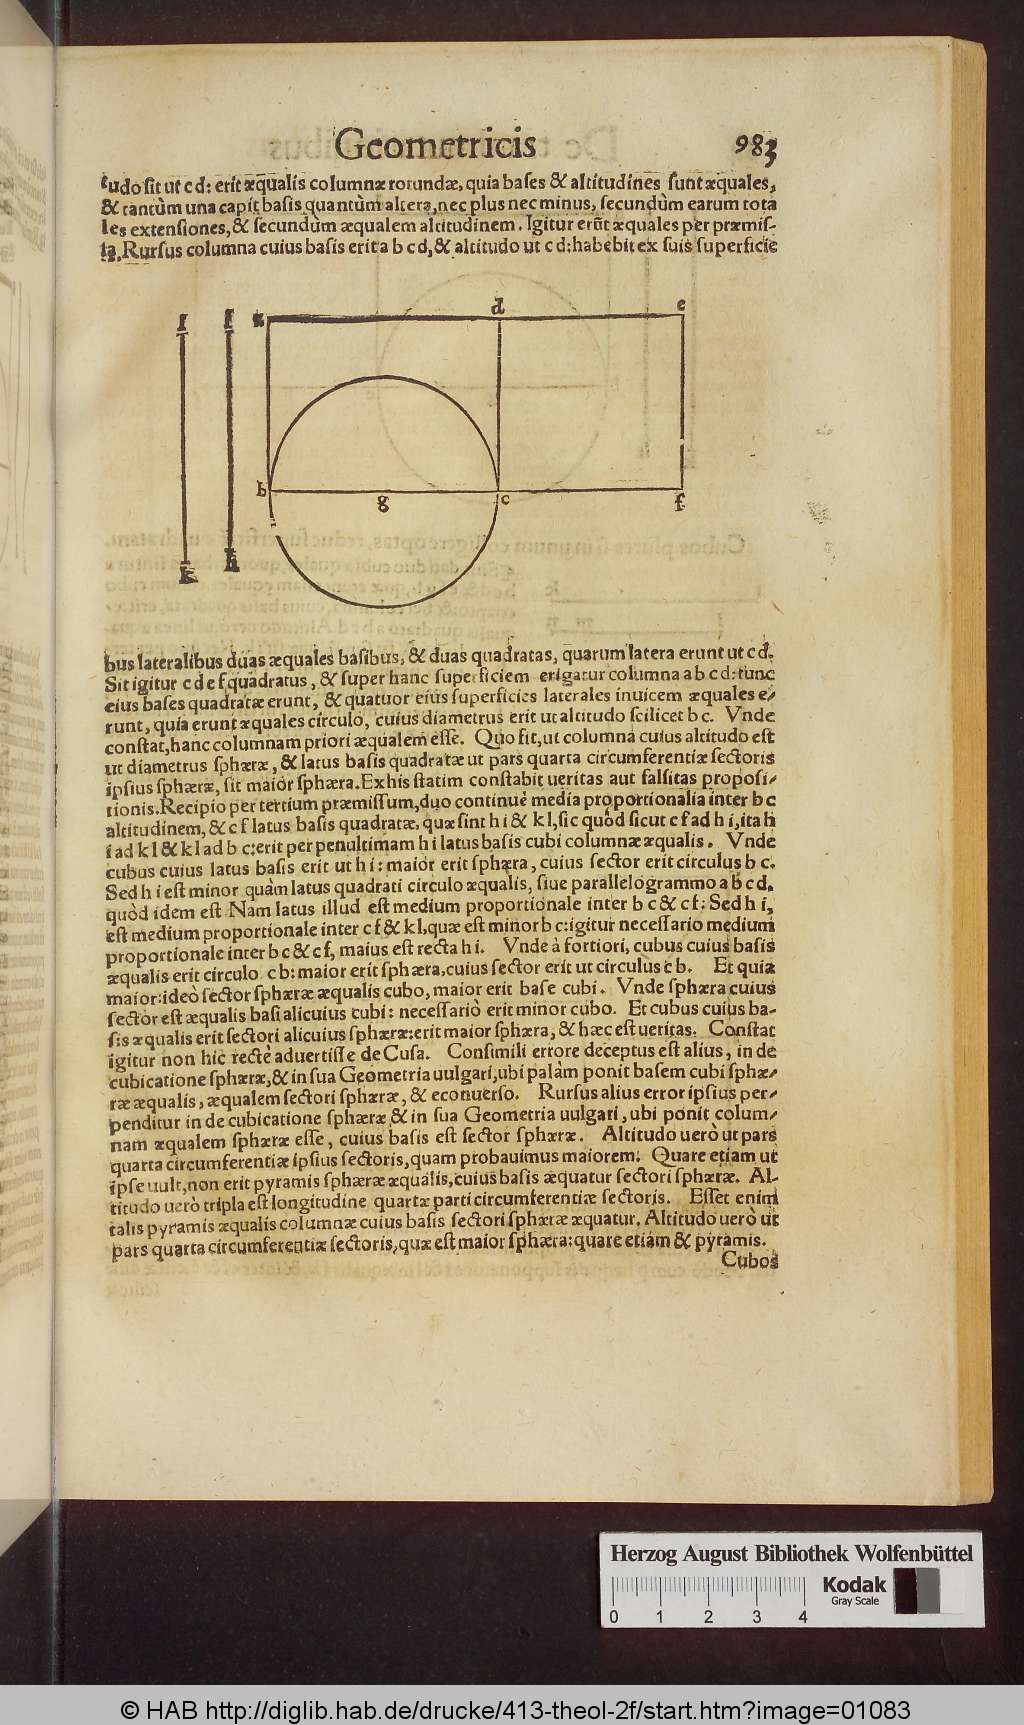 Geometricis 983
tudo sit ut c d: erit æqualis columnæ rotundæ, quia bases & altitudines sunt æquales,
& tantùm una capit basis quantùm altera, nec plus nec minus, secundùm earum tota
les extensiones, & secundùm æqualem altitudinem. Igitur erũt æquales per præmis-
sa. Rursus columna cuius basis erit a b c d, & altitudo ut c d: habebit ex suis superficie
l f a d e
b g c f
k h
bus lateralibus duas æquales basibus, & duas quadratas, quarum latera erunt ut c d.
Sit igitur c d e f quadratus, & super hanc superficiem erigatur columna a b c d: tunc
eius bases quadratæ erunt, & quatuor eius superficies laterales inuicem æquales e-
runt, quia erunt æquales circulo, cuius diametrus erit ut altitudo scilicet b c. Vnde
constat, hanc columnam priori æqualem esse. Quo fit, ut columna cuius altitudo est
ut diametrus sphæræ, & latus basis quadratæ ut pars quarta circumferentiæ sectoris
ipsius sphæræ, sit maior sphæra. Ex his statim constabit ueritas aut falsitas proposi-
tionis. Recipio per tertium præmissum, duo continuè media proportionalia inter b c
altitudinem, & c f latus basis quadratæ, quæ sint h i & k l, sic quòd sicut c f ad h i, ita h
i ad k l & k l ad b c: erit per penultimam h i latus basis cubi columnæ æqualis. Vnde
cubus cuius latus basis erit ut h i: maior erit sphæra, cuius sector erit circulus b c.
Sed h i est minor quàm latus quadrati circulo æqualis, siue parallelogrammo a b c d,
quòd idem est. Nam latus illud est medium proportionale inter b c & c f: Sed h i,
est medium proportionale inter c f & k l, quæ est minor b c: igitur necessario medium
proportionale inter b c & c f, maius est recta h i. Vnde à fortiori, cubus cuius basis
æqualis erit circulo c b: maior erit sphæra, cuius sector erit ut circulus c b. Et quia
maior: ideò sector sphæræ æqualis cubo, maior erit base cubi. Vnde sphæra cuius
sector est æqualis basi alicuius cubi: necessariò erit minor cubo. Et cubus cuius ba-
sis æqualis erit sectori alicuius sphæræ: erit maior sphæra, & hæc est ueritas. Constat
igitur non hic rectè aduertisse de Cusa. Consimili errore deceptus est alius, in de
cubicatione sphæræ, & in sua Geometria uulgari, ubi palàm ponit basem cubi sphæ-
ræ æqualis, æqualem sectori sphæræ, & econuerso. Rursus alius error ipsius per-
penditur in de cubicatione sphæræ & in sua Geometria uulgari, ubi ponit colum-
nam æqualem sphæræ esse, cuius basis est sector sphæræ. Altitudo uerò ut pars
quarta circumferentiæ ipsius sectoris, quam probauimus maiorem. Quare etiam ut
ipse uult, non erit pyramis sphæræ æqualis, cuius basis æquatur sectori sphæræ. Al-
titudo uerò tripla est longitudine quartæ parti circumferentiæ sectoris. Esset enim
talis pyramis æqualis columnæ cuius basis sectori sphæræ æquatur. Altitudo uerò ut
pars quarta circumferentiæ sectoris, quæ est maior sphæra: quare etiam & pyramis.
Cubos
Herzog August Bibliothek Wolfenbüttel
Kodak
Gray Scale
0 1 2 3 4
© HAB http://diglib.hab.de/drucke/413-theol-2f/start.htm?image=01083